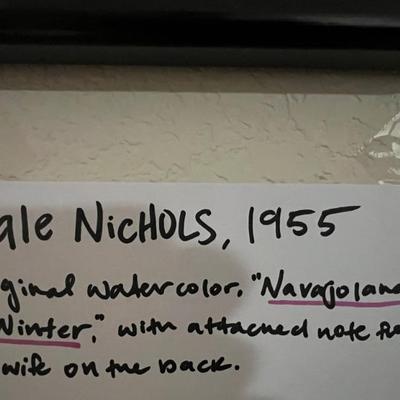 ale NICHOLS, 1955
ginal watercolor, "Navajoland
Winter," with attached note
wife on the back.